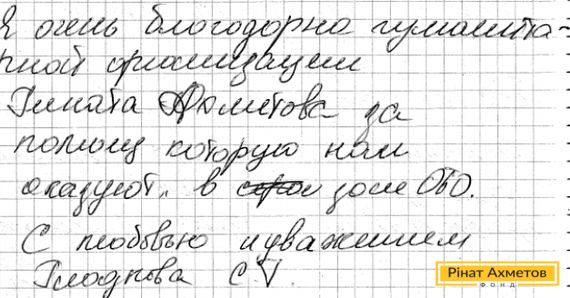 Я очень благодорна гуманита-
рной организации
Рината Ахметова за
помощ которую нам
оказуют, в зоне ОБО.
С любовью и уважением
С.
Рінат Ахметов
ФОНД